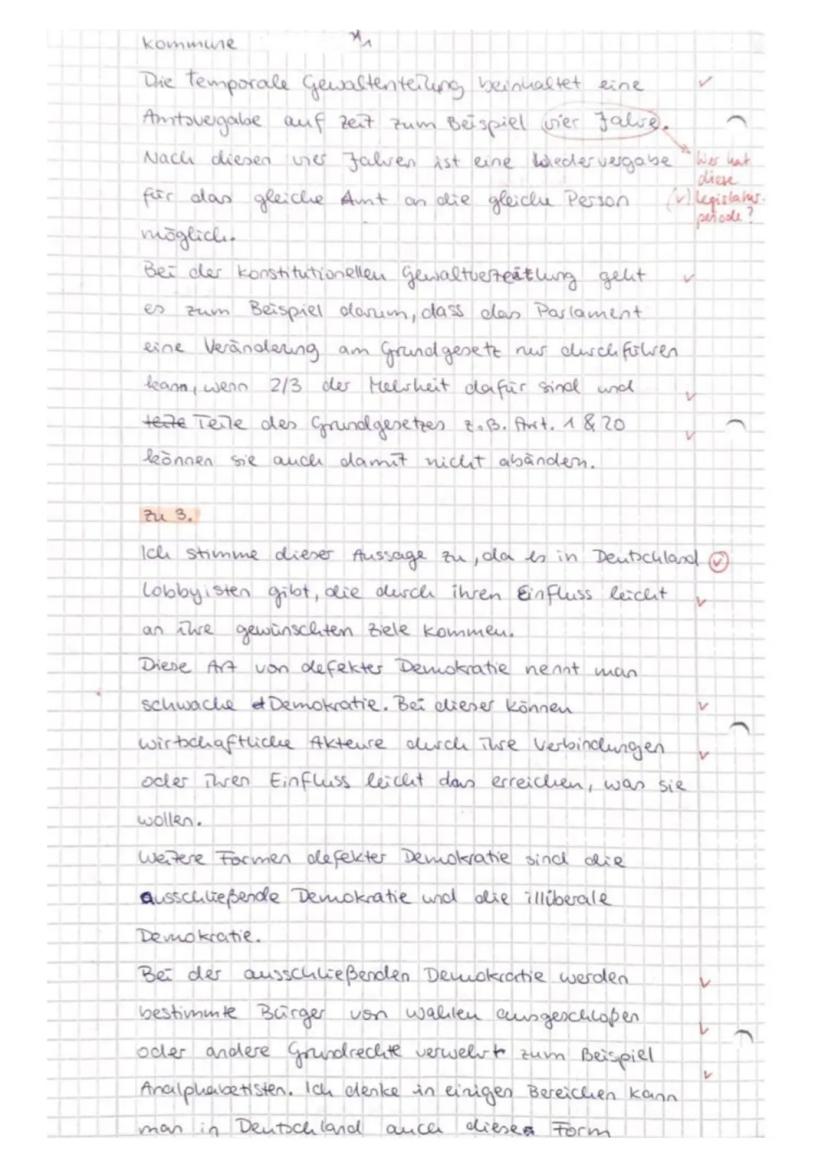 Kommune
Die temporale Gewaltenteilung beinhaltet eine
Amtsvergabe auf Zeit zum Beispiel vier Jahre.
Nach diesen vier Jahren ist eine Wiedervergabe
für das gleiche Amt an die gleiche Person
möglich.
Wer hat
diese
(✓) Legislatur-
periode?
Bei der konstitutionellen Gewaltverteitlung geht
es zum Beispiel darum, dass das Parlament
eine Veränderung am Grundgesetz nur durchführen
kann, wenn 2/3 der Mehrheit dafür sind und
Teile des Grundgesetzes z.B. Art. 1 & 20
können sie auch damit nicht abändern.
Zu 3.
Ich stimme dieser Aussage zu, da es in Deutschland
Lobbyisten gibt, die durch ihren Einfluss leicht
an ihre gewünschten Ziele kommen.
Diese Art von defekter Demokratie nennt man
schwache Demokratie. Bei dieser können
wirtschaftliche Akteure durch ihre Verbindungen
oder ihren Einfluss leicht das erreichen, was sie
wollen.
Weitere Formen defekter Demokratie sind die
ausschließende Demokratie und die illiberale
Demokratie.
Bei der ausschließenden Demokratie werden
bestimmte Bürger von Wahlen ausgeschloßen
oder andere Grundrechte verwehrt zum Beispiel
Analphabetisten. Ich denke in einigen Bereichen kann
man in Deutschland auch diese Form